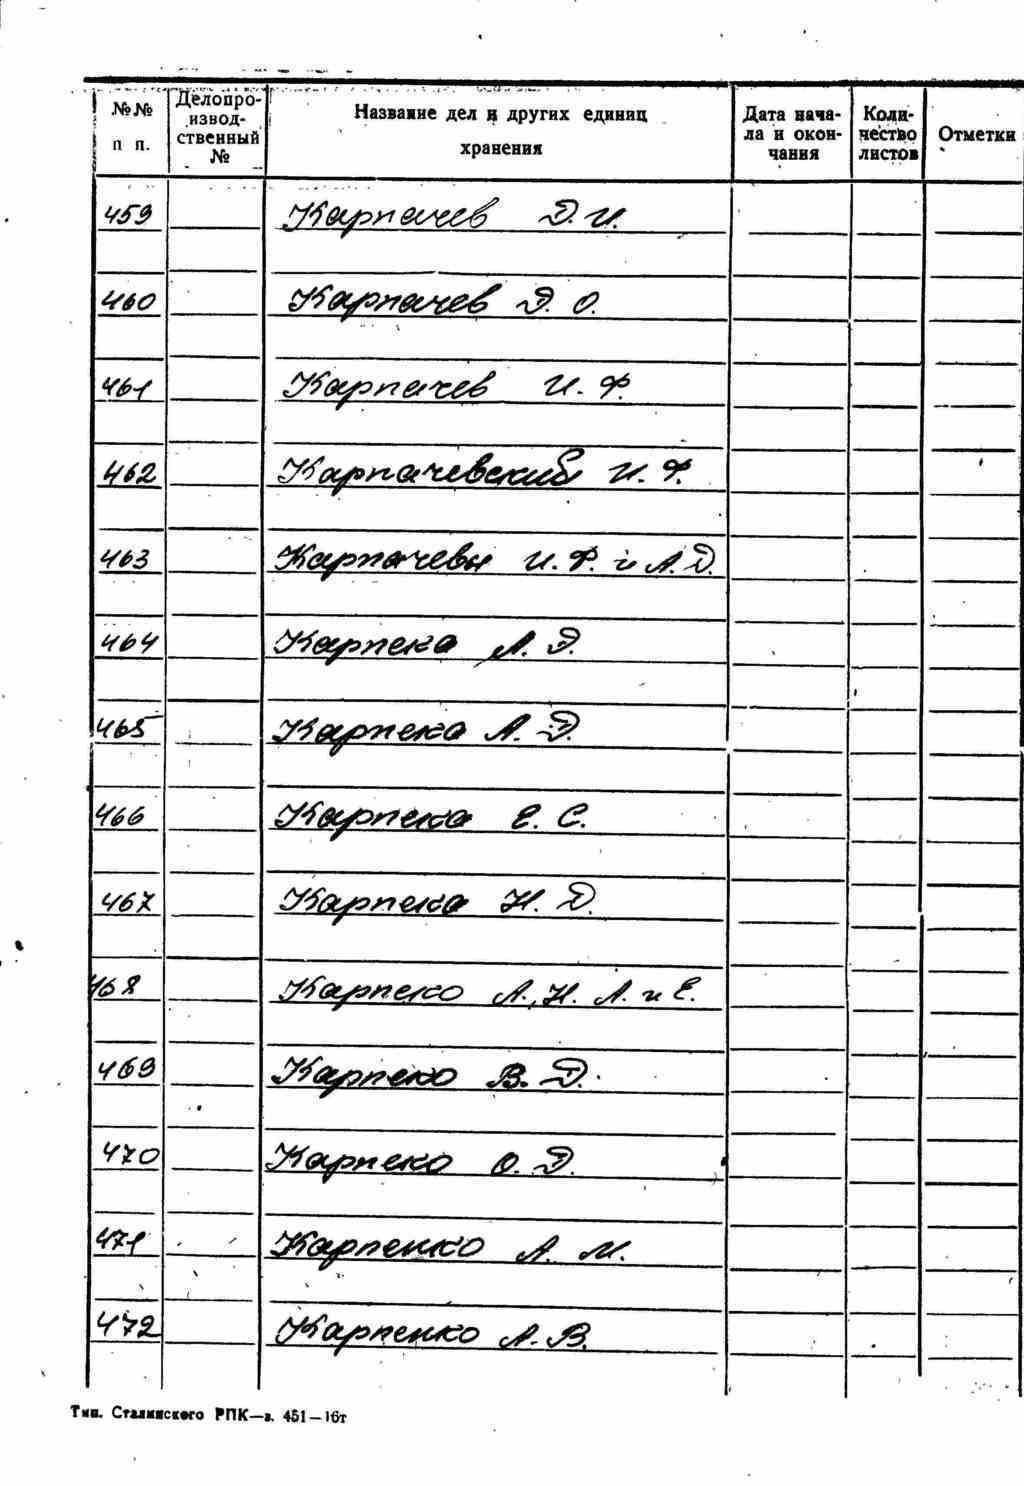 №№ п п.
Делопроизвод-ственный №
Название дел и других единиц хранения
Дата нача-ла и окон-чания
Коли-чество листов
Отметки
459 Карпачев Д. И.
460 Карпачев Д. О.
461 Карпачев И. Ф.
462 Карпачевский И. Ф.
463 Карпачевы И. Ф. и А. Д.
464 Карпека А. Д.
465 Карпека А. Д.
466 Карпека Е. С.
467 Карпека Н. Д.
468 Карпеко А., Н. А. и Е.
469 Карпеко В. Д.
470 Карпеко О. Д.
471 Карпенко А. М.
472 Карпенко А. В.
Тип. Сталинского РПК—з. 451—16т